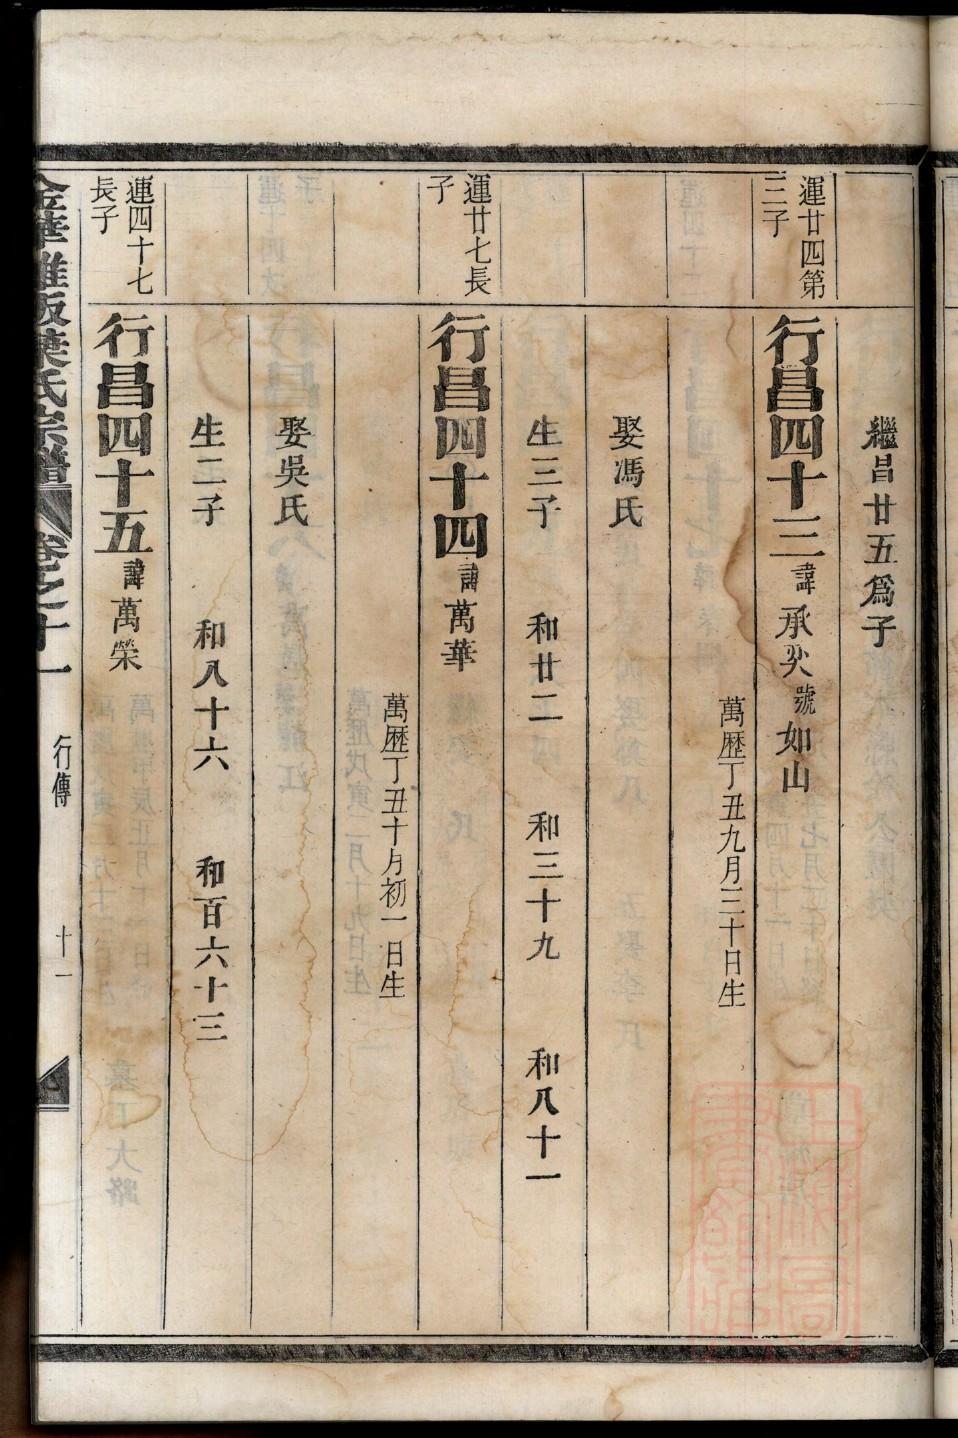 繼昌廿五爲子
運廿四第
三子
行昌四十三諱承奕號如山
萬歷丁丑九月三十日生
娶馮氏
生三子 和廿二 和三十九 和八十一
運廿七長
子
行昌四十四諱萬華
萬歷丁丑十月初一日生
娶吳氏
生二子 和八十六 和百六十三
運四十七
長子
行昌四十五諱萬榮
葉氏宗譜 卷之十一 行傳 十一